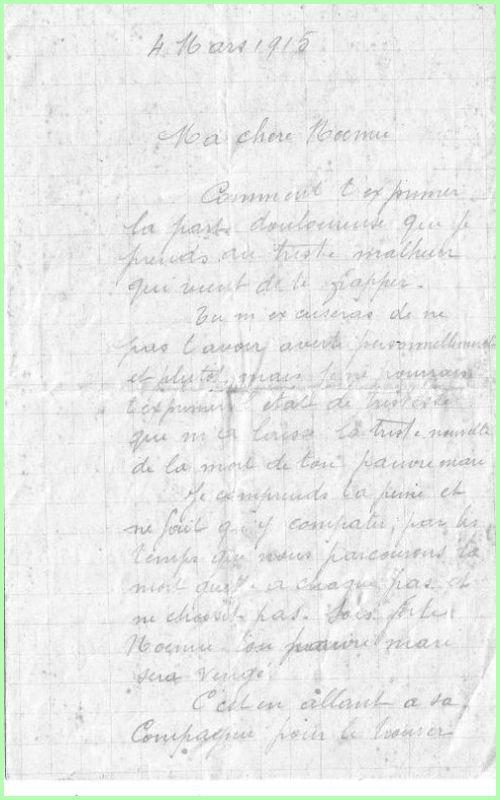 4 Mars 1915
Ma chère Noemie
Comment t'exprimer
la part douloureuse que je
prends au triste malheur
qui vient de te frapper.
Tu m'excuseras de ne
pas t'avoir averti personnellement
et plutot, mais je ne pourrais
t'exprimer l'état de tristesse
que m'a laissé la triste nouvelle
de la mort de ton pauvre mari
Je comprends ta peine et
ne fait qu'y compatir, par les
temps que nous parcourons la
mort guette a chaque pas et
ne choisit pas. Sois forte
Noemie ton pauvre mari
sera vengé
C'est en allant a sa
Compagnie pour le trouver